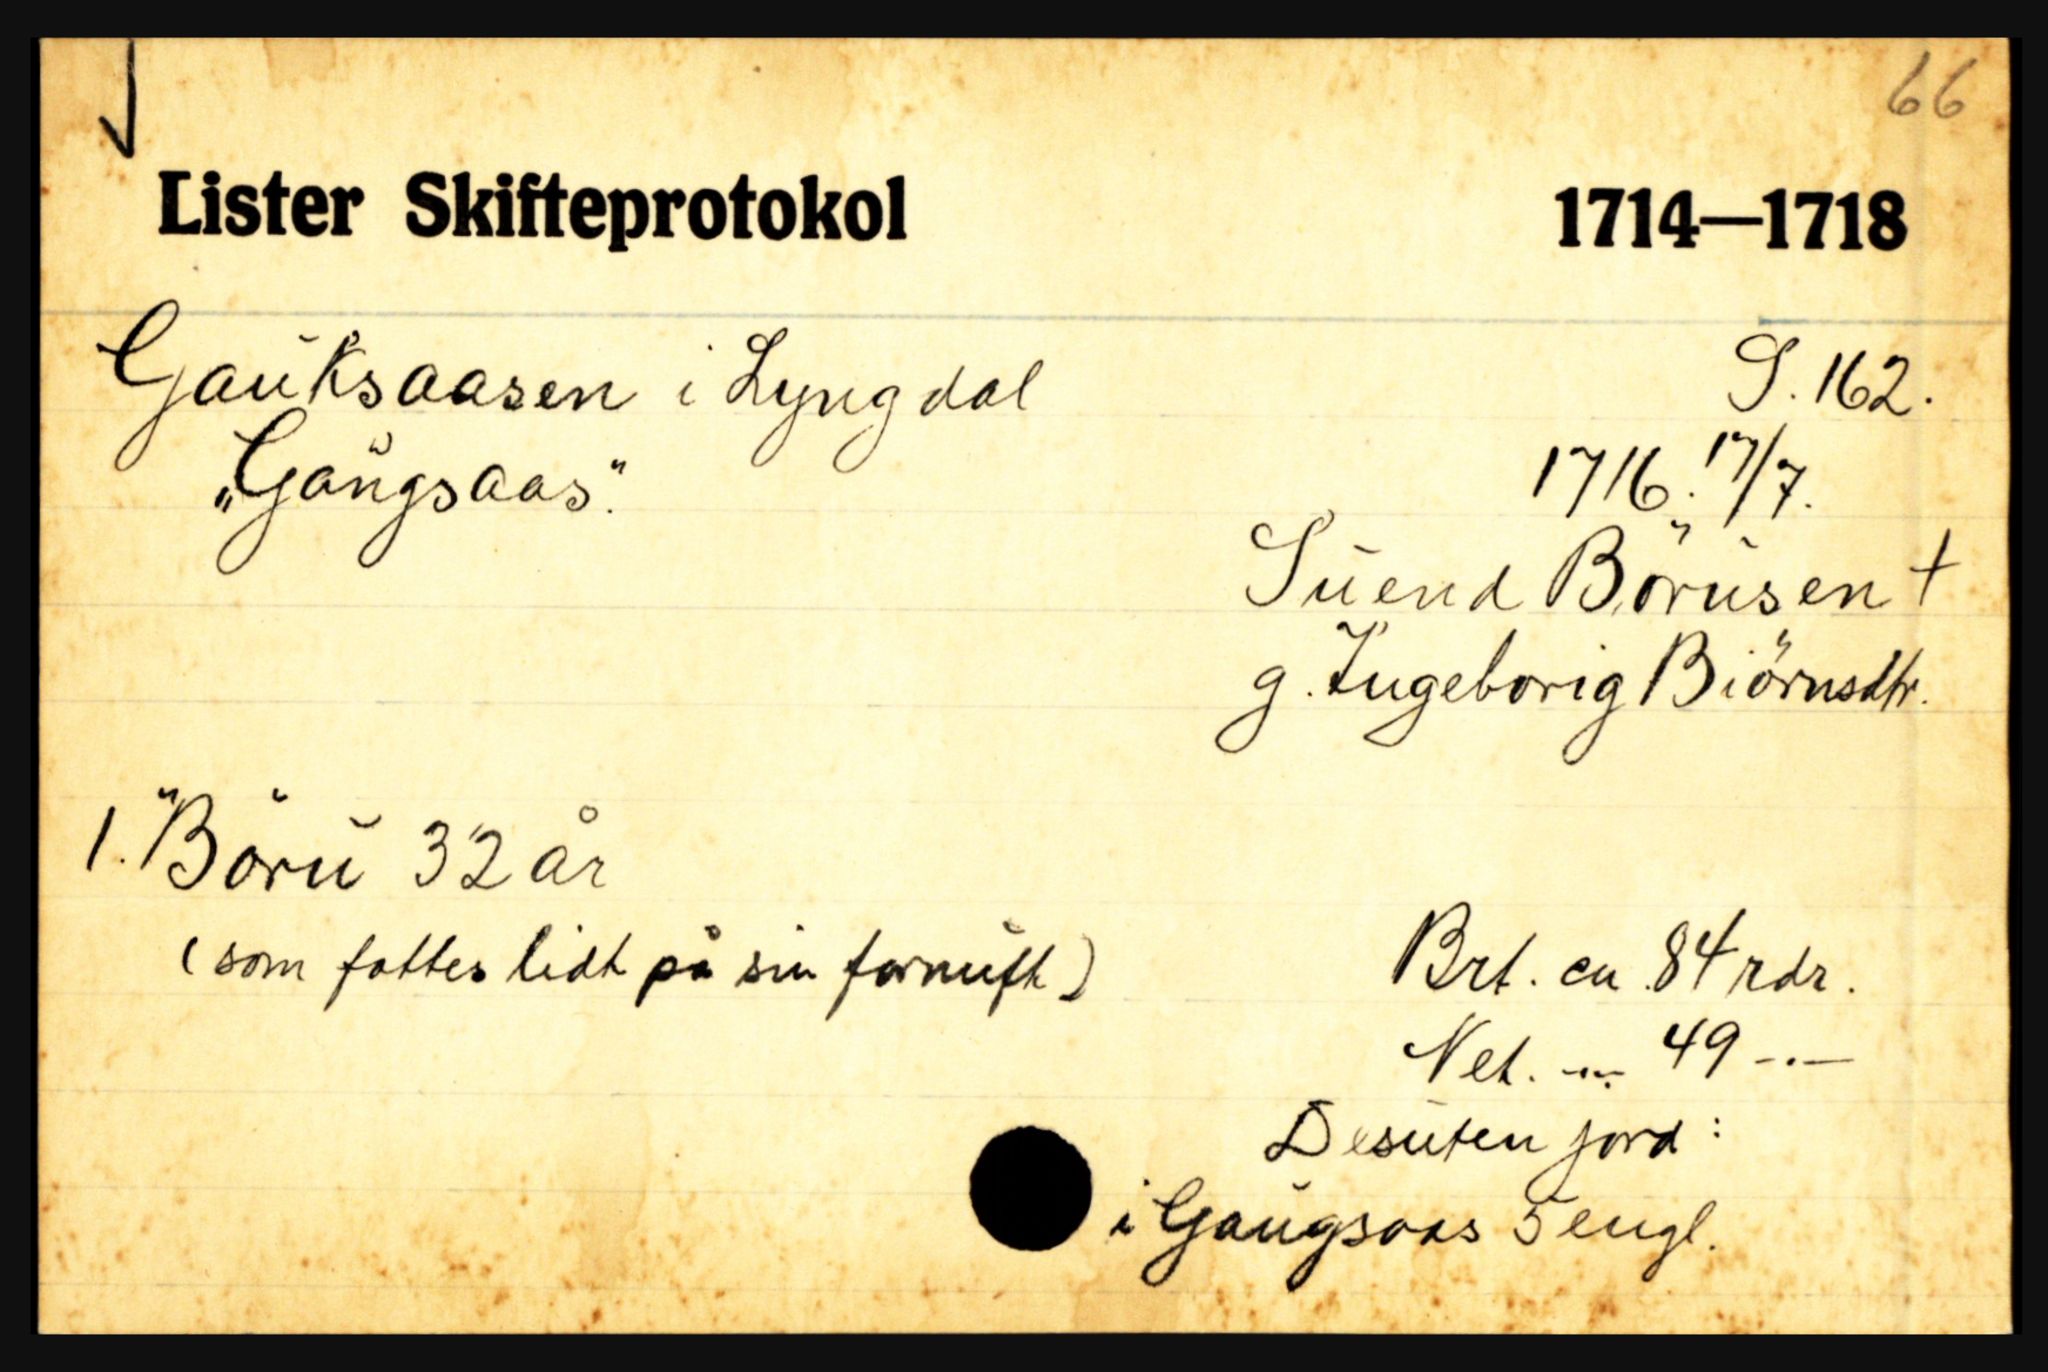 66
Lister Skifteprotokol 1714—1718
Gauksaasen i Lyngdal S. 162.
„Gaugsaas". 1716. 17/7.
Suend Börusen +
g. Ingeborig Biörnsdtr.
1. "Böru 32 år
(som fattes lidt på sin fornuft) Brt. ca. 84 rdr.
Net. -.- 49 -.-
Desuten jord:
i Gaugsaas 5 engl.